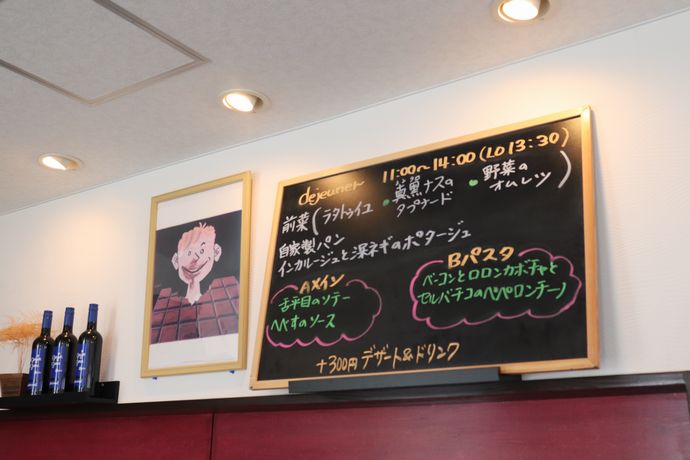 dejeuner 11:00〜14:00 (LO 13:30)
前菜 (ラタトゥイユ ●真黒ナスのタプナード ●野菜のオムレツ)
自家製パン
インカルージュと深ネギのポタージュ
Aメイン
舌平目のソテー
へべすのソース
Bパスタ
ベーコンとロロンカボチャと
セルバチコのペペロンチーノ
+300円 デザート&ドリンク